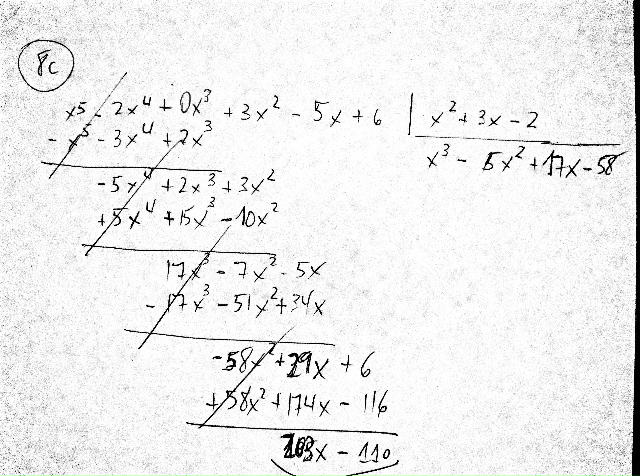 8c
x⁵ - 2x⁴ + 0x³ + 3x² - 5x + 6 | x² + 3x - 2
- x⁵ - 3x⁴ + 2x³
x³ - 5x² + 17x - 58
-5x⁴ + 2x³ + 3x²
+5x⁴ + 15x³ - 10x²
17x³ - 7x² - 5x
- 17x³ - 51x² + 34x
-58x² + 29x + 6
+58x² + 174x - 116
203x - 110